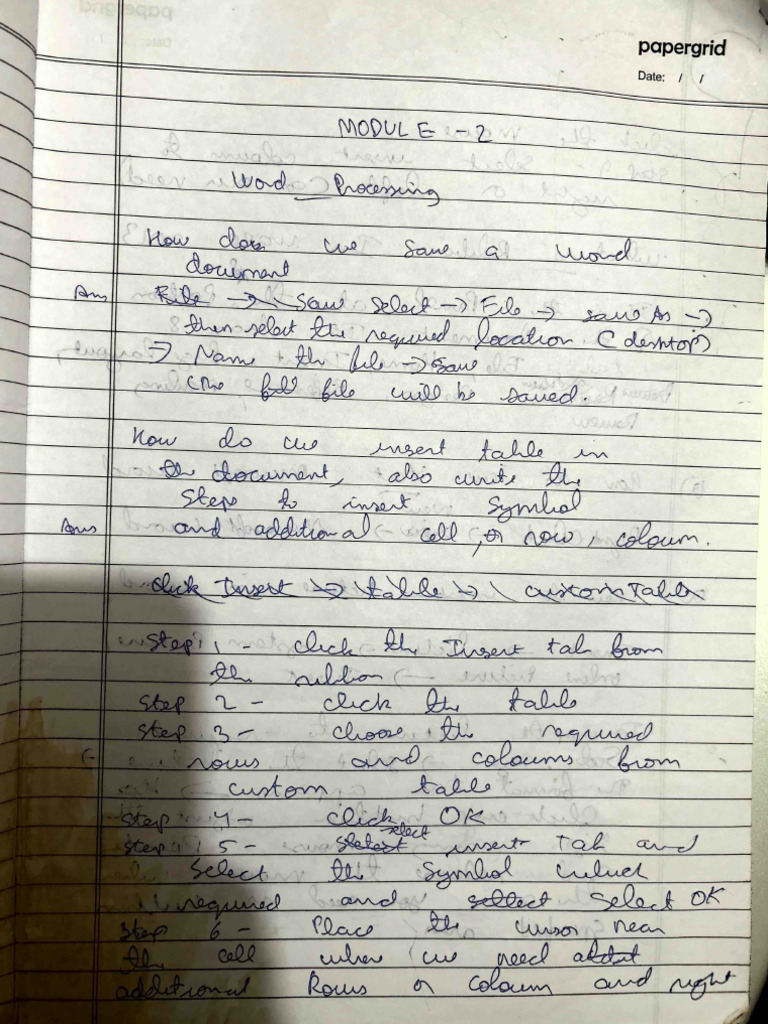 papergrid
Date: / /
MODULE - 2
Word Processing
How does we save a word
document
Ans File → Save Select → File → save As →
then select the required location (desktop)
→ Name the file → save
(The full file will be saved.
How do we insert table in
the document, also write the
Steps to insert Symbol
Ans and additional cell, or row, coloum.
click Insert → table → custom Table
Step 1 - click the Insert tab from
the ribbon
Step 2 - click the table
Step 3 - choose the required
rows and coloums from
custom table
Step 4 - click OK
Step 5 - select insert Tab and
Select the Symbol which
required and select OK
Step 6 - Place the cursor near
the cell where we need
additional Rows or Coloum and right